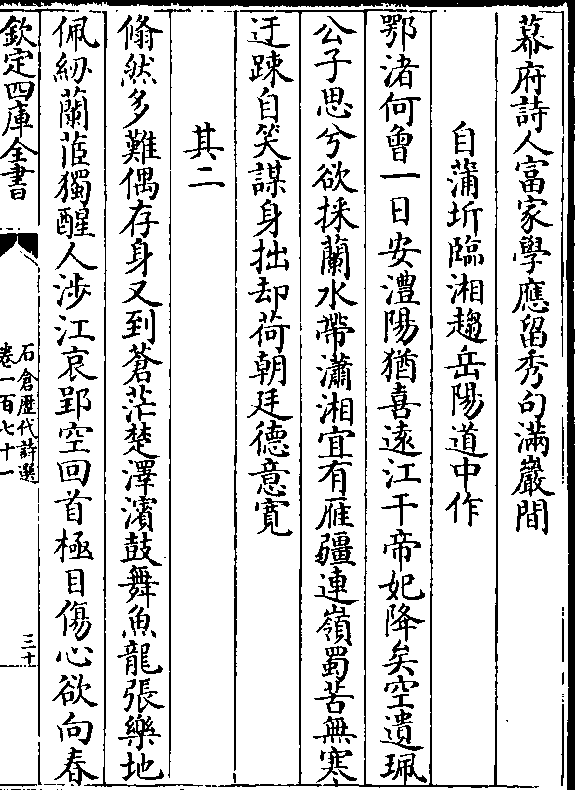 幕府詩人富家學應留秀句滿巖間
自蒲圻臨湘趨岳陽道中作
鄂渚何曾一日安澧陽猶喜遠江干帝妃降矣空遺珮
公子思兮欲採蘭水帶瀟湘宜有雁疆連嶺蜀苦無寒
迂踈自笑謀身拙却荷朝廷德意寛
其二
翛然多難偶存身又到蒼茫楚澤濱鼓舞魚龍張樂地
佩紉蘭茝獨醒人涉江哀郢空回首極目傷心欲向春
欽定四庫全書
石倉歴代詩選
卷一百七十一
三十